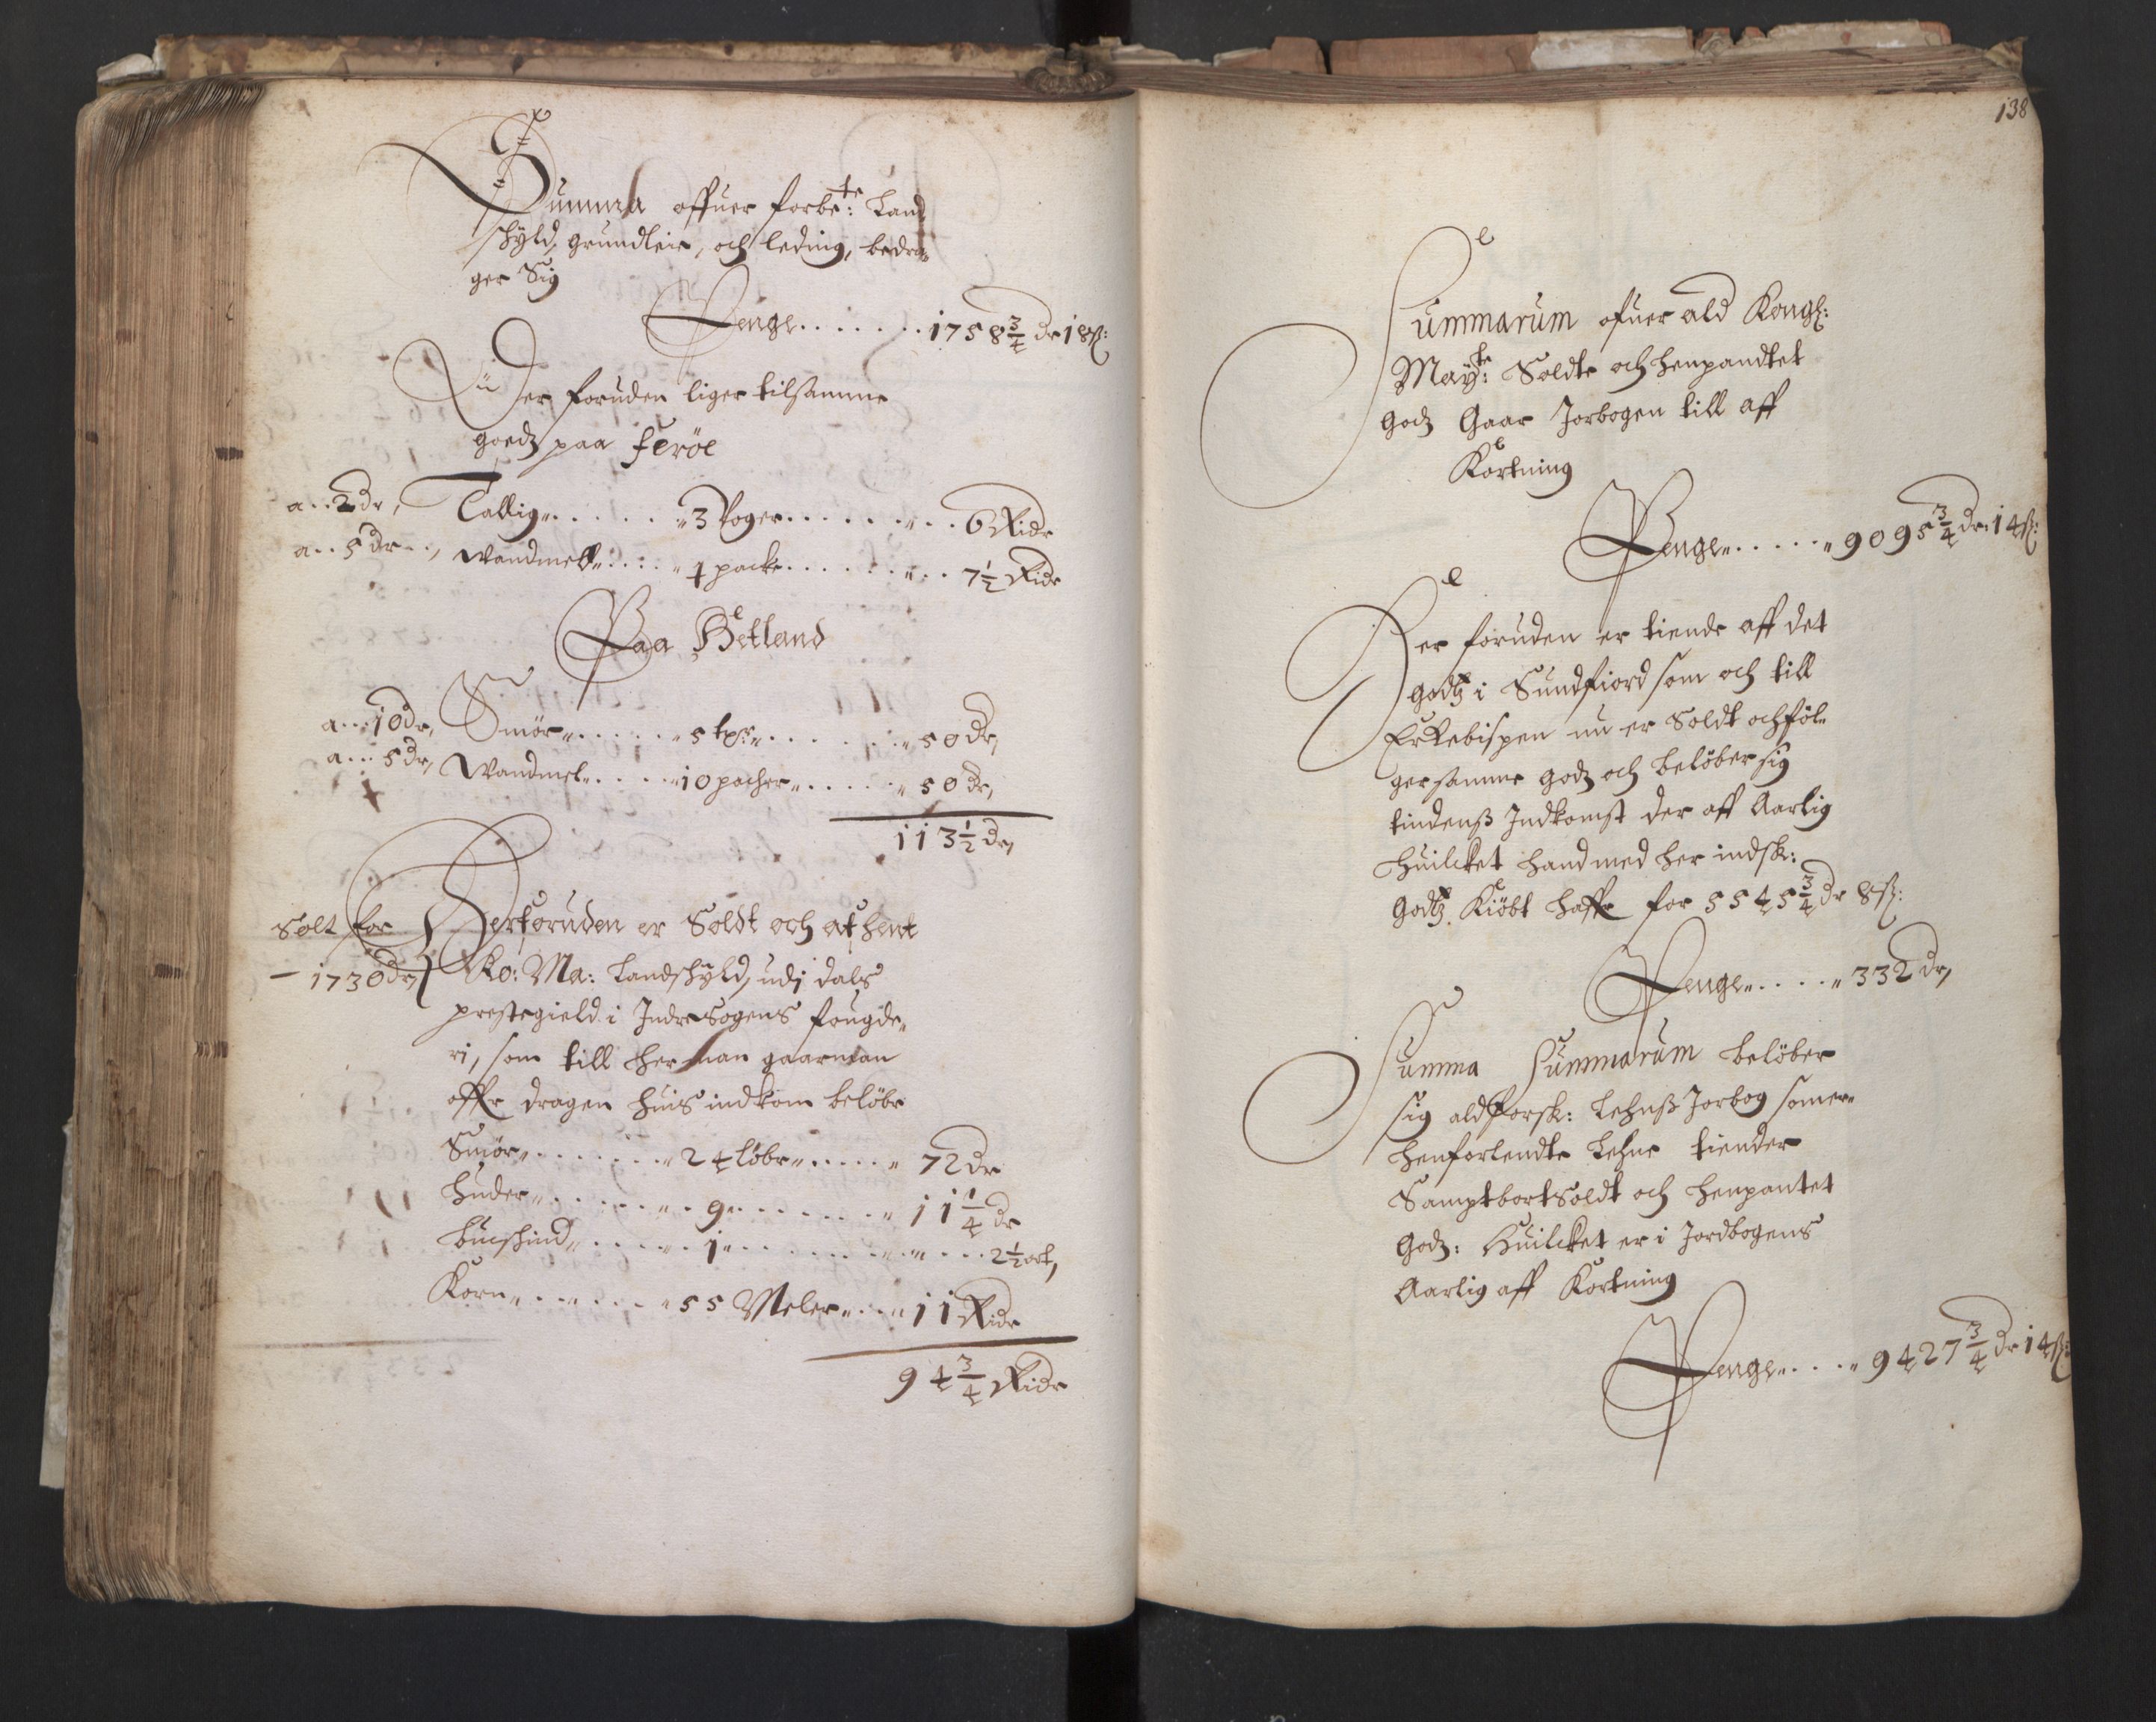 Summa offuer forbe:te Land
skyld, grundleie, och leding, bedra„
ger Sig
Penge . . . . . . . 1758 3/4 dr 18 ß:
Der foruden liger tilsamme
goedz paa Ferøe
a . . 2 dr, Tallig„ . . . . . „3 Woger . . . . . . „ . . 6 Ridr
a . . 5 dr . . , Wandmell„ . . . „ 1 pack . . . . . . „ . . 7 1/2 Ridr
Paa Hetland
a . . . 10 dr, Smör„ . . . . . „5 tp:„ . . . . . „ 50 dr,
a . . . 5 dr, Wandmel„ . . . . „10 packer„ . . . . . „ 50 dr,
113 1/2 dr,
Solt for
– 1730 dr,
Derforuden er Soldt och afhent
Ko: Ma: Landskyld, udj dals
prestegield i Indresogens fougde„
ri, som till Herman gaarman
offr dragen huis indkom belöbr
Smör„ . . . . . . „ 24 löbr„ . . . . „ 72 dr
Huder„ . . . . . „ . 9 . . . . . . . „ 11 1/4 dr
Buckskind„ . . . . . 1„ . . . . . „ . „ . . . 2 1/2 ort,
Korn„ . . „ . . . „ 55 Meler„ . . „ 11 Ridr
94 3/4 Ridr
138
Summarum ofuer ald Kongl:
Mayt:te Soldte och henpandtet
Godz Gaar Jorbogen till aff
Kortning
Penge„ . . . . „ 9095 3/4 dr: 14 ß:
Der foruden er tiende aff det
godtz i Sundfiord som och till
Erkebispen nu er Soldt och föl„
ger samme godz och belöber sig
tindenß Indkomst der aff Aarlig
huilcket hand med her indsk:
Godtz Kiöbt haffr for 5545 3/4 dr 8 ß:
Penge„ . . . . „ 332 dr,
Summa Summarum belöber
sig ald forsk: Lehnß Jorbog som er„
henforlendte Lehne tiender
Sampt bortsoldt och henpantet
Godz: Huilcket er i Jordbogens
Aarlig aff Kortning
Penge„ . . . „ 9427 3/4 dr 14 ß: